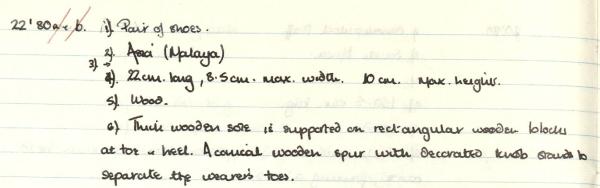 22'80 a & b. 1). Pair of shoes.
2). Asia (Malaya)
3). -
4). 22cm. long, 8.5cm. max. width. 10 cm. Max. height.
5). Wood.
6) Thick wooden sole is supported on rectangular wooden blocks
at toe & heel. A conical wooden spur with decorated knob stands to
separate the wearer's toes.